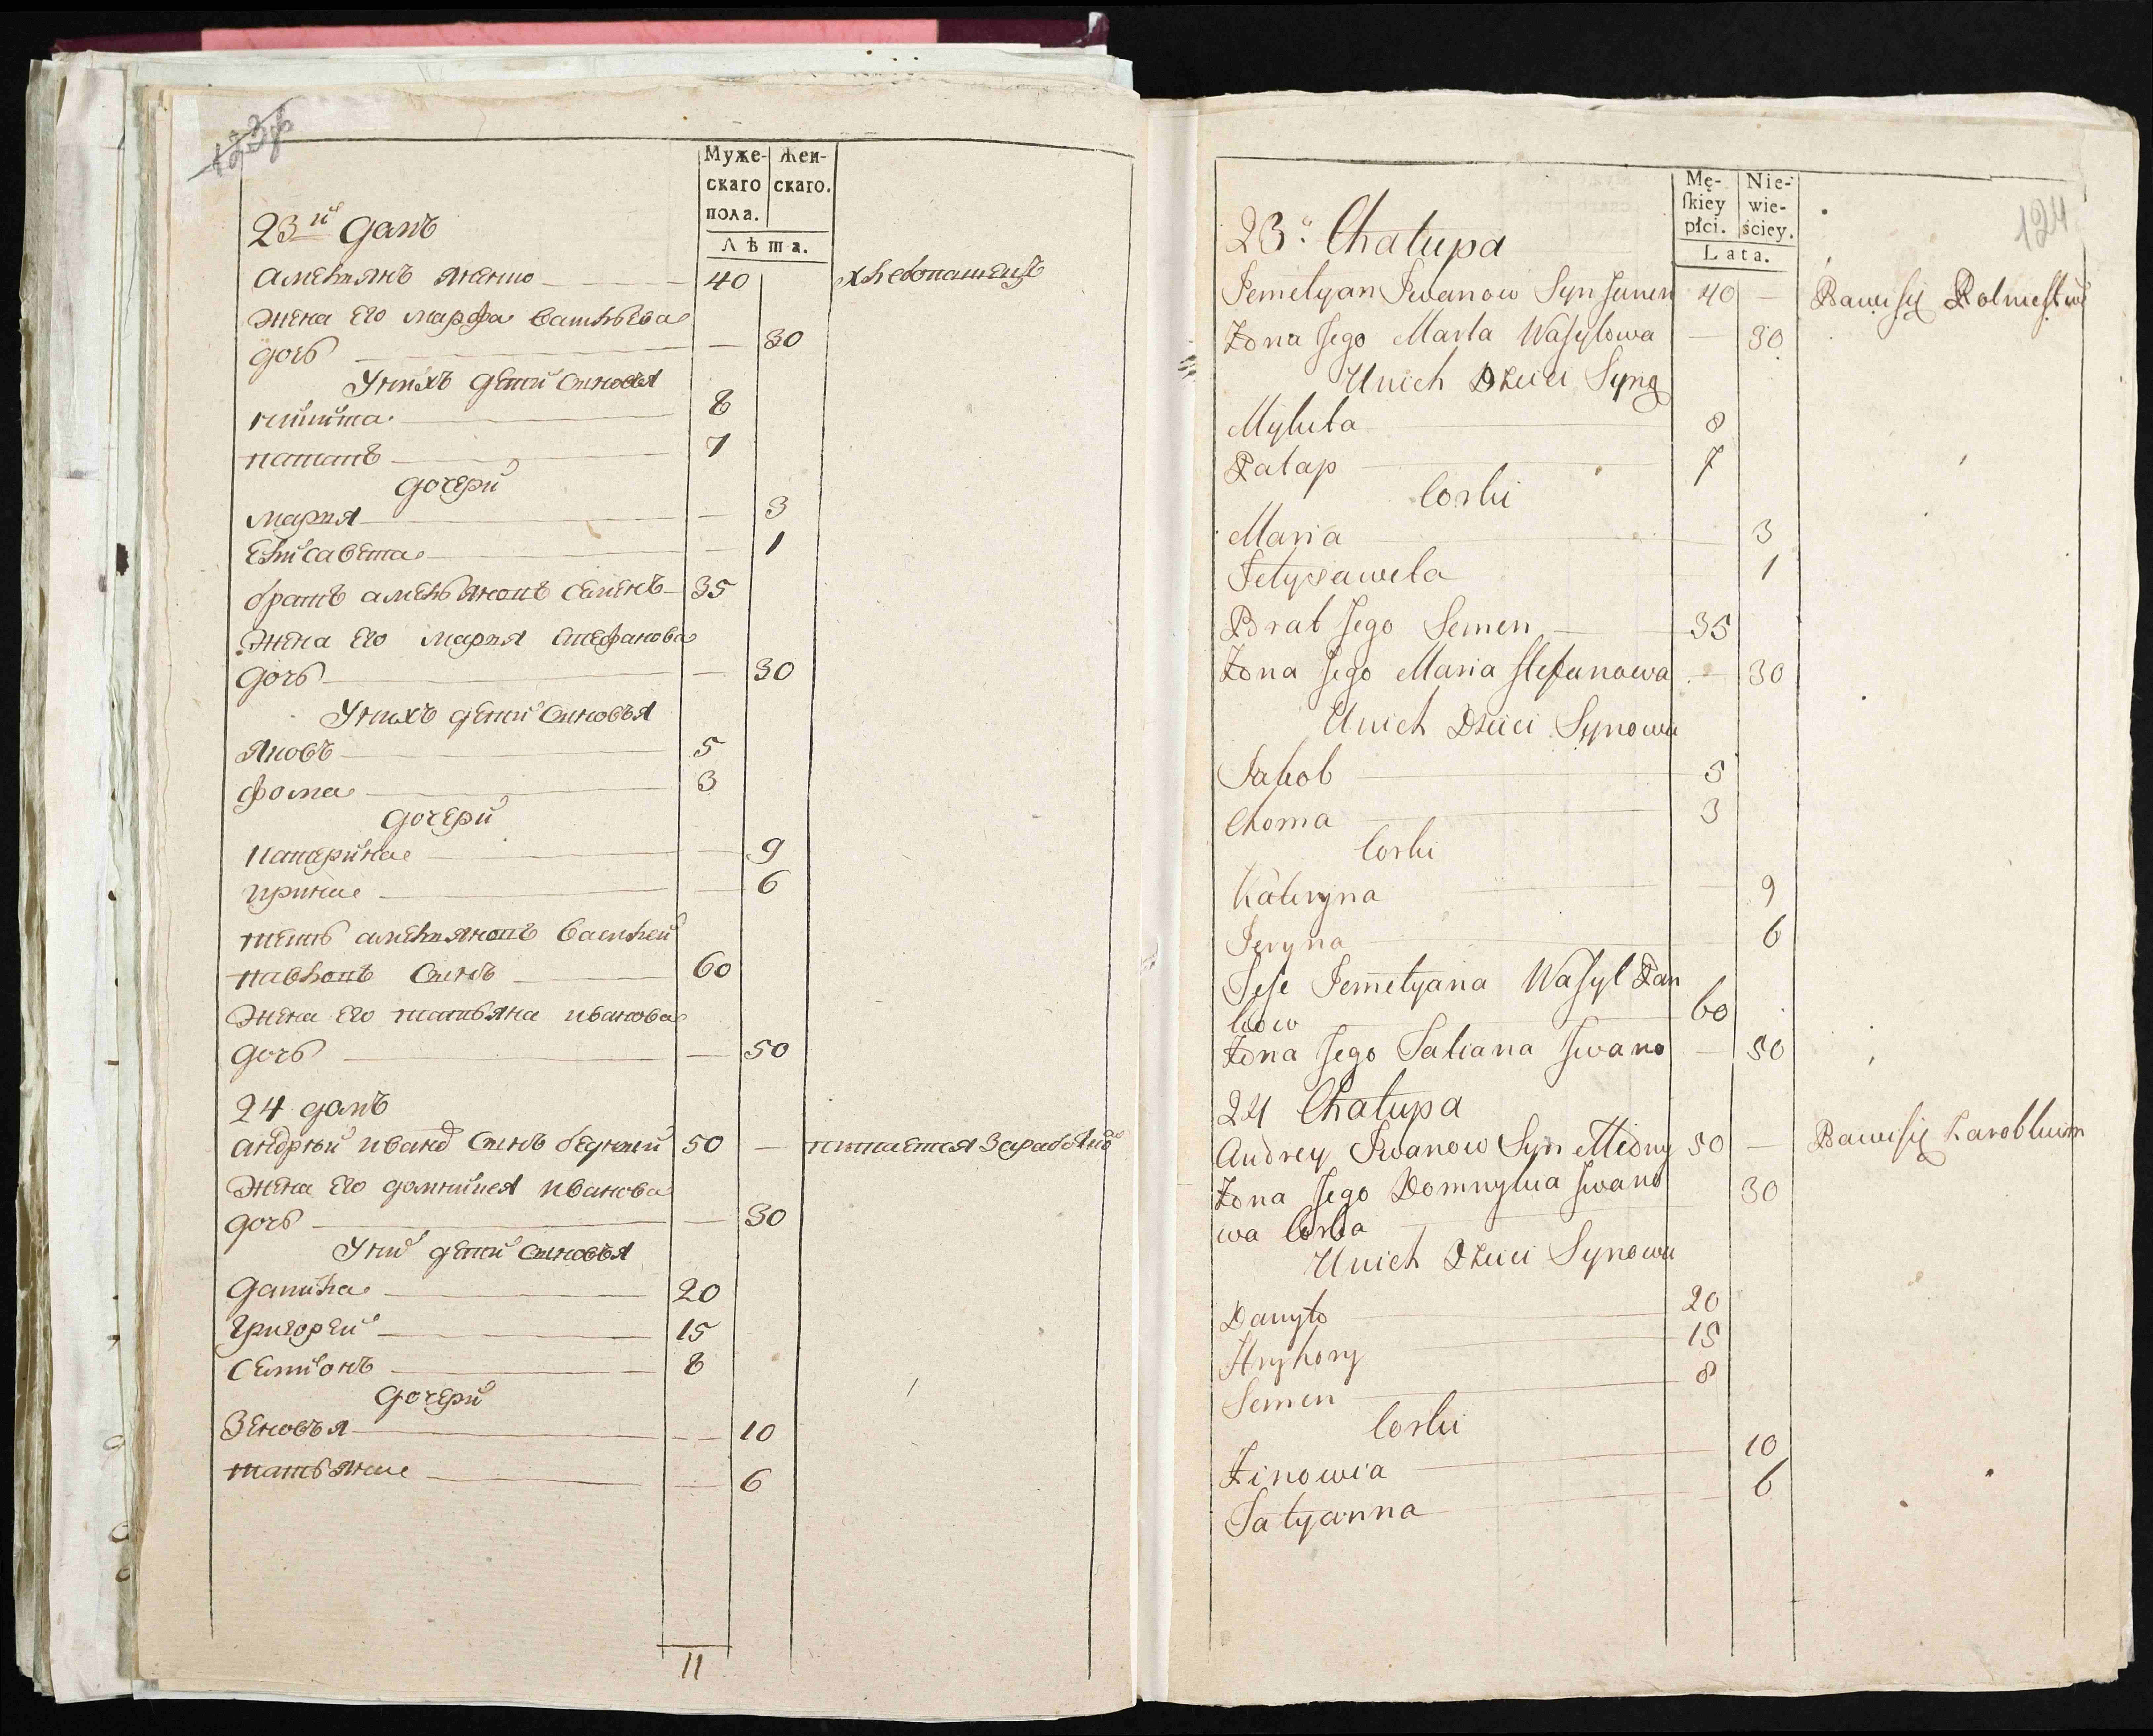 123
Муже-
скаго
пола.
Жен-
скаго.
Лѣта.
23й домъ
амельянъ яненко 40 хлебопашецъ
жена его марфа васильева
дочь — 30
У нихъ дети синовья
никита 8
патапъ 7
дочери
мария — 3
елисавета — 1
братъ амельяновъ семенъ 35
жена его мария стефанова
дочь — 30
У нихъ дети синовья
яковъ 5
фома 3
дочери
катерина — 9
ирина — 6
тесть амельяновъ василей
павловъ синъ 60
жена его татьяна иванова
дочь — 50
24 домъ
андрей иванов синъ бедный 50 — питается
жена его домникия иванова
дочь — 30
У них дети синовья
данила 20
григорей 15
семионъ 8
дочери
Зеновья — 10
татьяна — 6
11
124
Mę-
ſkiey
płci.
Nie-
wie-
ściey.
Lata.
23. Chałupa
Jemelyan Iwanow Syn 40 — Bawi się Rolnictwe
Żona Jego Marta Wasylowa — 30
U nich Dzieci Syny
Mykita 8
Patap 7
Corki
Maria 3
Jelyzaweta 1
Brat Jego Semen 35
Żona Jego Maria Stefanowa — 30
U nich Dzieci Synowie
Jakob 5
Choma 3
Corki
Kateryna 9
Jeryna 6
Jemelyana Wasyl Paw
low 60
Żona Jego Tatiana Iwano — 50
24 Chałupa
Andrey Iwanow Syn 50 — Bawi się
Żona Jego Domnykia Iwano 30
wa Corka
U nich Dzieci Synowie
Danyło 20
Hryhory 15
Semen 8
Corki
Zinowia 10
Tatyanna 6